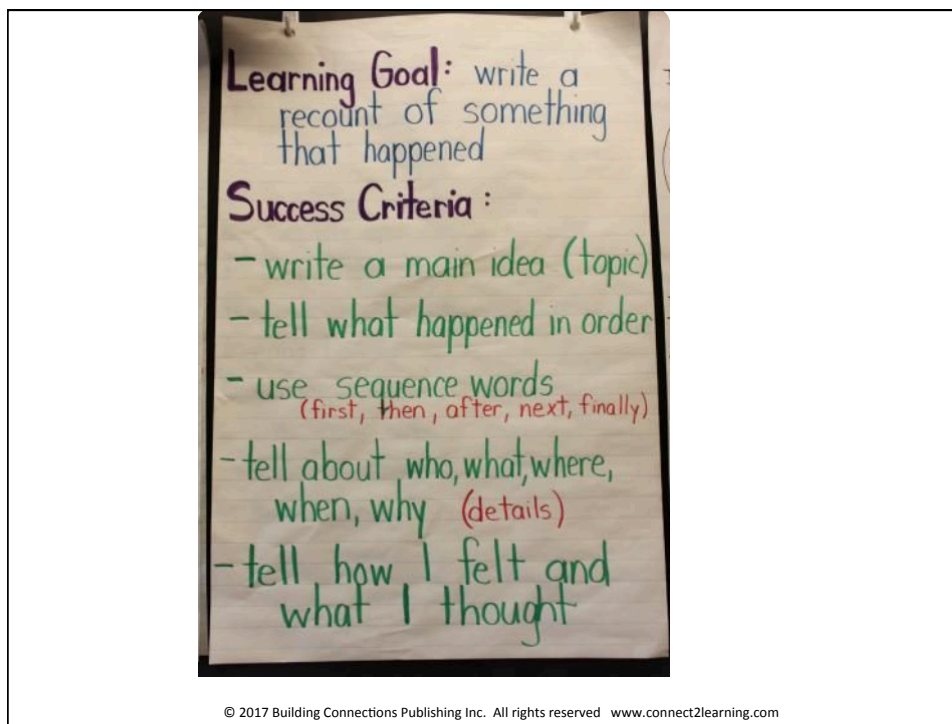 Learning Goal: write a
recount of something
that happened
Success Criteria:
- write a main idea (topic)
- tell what happened in order
- use sequence words
(first, then, after, next, finally)
- tell about who, what, where,
when, why (details)
- tell how I felt and
what I thought
© 2017 Building Connections Publishing Inc. All rights reserved www.connect2learning.com